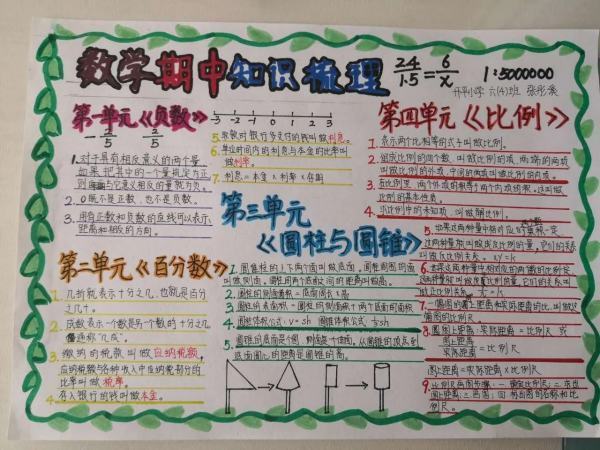 数学期中知识梳理
24/1.5=6/x
1:5000000
开平小学 六(4)班
第一单元《负数》
-3 -2 -1 0 1 2 3
1.对于具有相反意义的两个量
如果把其中的一个量规定为正
则与它意义相反的量就为负。
2.0既不是正数,也不是负数。
3.用有正数和负数的直线可以表示
距离和相反的方向。
第二单元《百分数》
1.几折就表示十分之几,也就是百分
之几十。
2.成数表示一个数是另一个数的十分之几
通称"几成"。
3.缴纳的税款叫做应纳税额,
应纳税额与各种收入中应纳税部分的
比率叫做税率。
4.存入银行的钱叫做本金。
5.取款时银行多支付的钱叫做利息。
6.单位时间内的利息与本金的比率叫
做利率。
7.利息=本金×利率×存期
第三单元
《圆柱与圆锥》
1.圆柱的上下两个面叫做底面,圆柱周围的面
叫做侧面,圆柱两个底面之间的距离叫做高。
2.圆柱的侧面面积=底面周长×高
3.圆柱的表面积=圆柱的侧面积+两个底面的面积
4.圆柱体积公式:V=sh 圆锥体积公式:⅓sh
5.圆锥的底面是个圆,侧面是个曲面,从圆锥的顶点到
底面圆心的距离是圆锥的高。
第四单元《比例》
1.表示两个比相等的式子叫做比例。
2.组成比例的四个数,叫做比例的项,两端的两项
叫做比例的外项,中间的两项叫做比例的内项。
3.在比例里,两个外项的积等于两个内项的积,这叫做
比例的基本性质。
4.求比例中的未知项,叫做解比例。
5.如果这两种量中相对应的两个数的积一定
这两种量就叫做成反比例的量,它们的关系
叫做反比例关系。xy=k
6.如果这两种量中相对应的两个数的比值一定
这两种量就叫做成正比例的量,它们的关系叫
做正比例关系。
7.一幅图的图上距离和实际距离的比,叫做这
幅图的比例尺。
8.图上距离:实际距离=比例尺 或
图上距离/实际距离=比例尺
图上距离=实际距离×比例尺